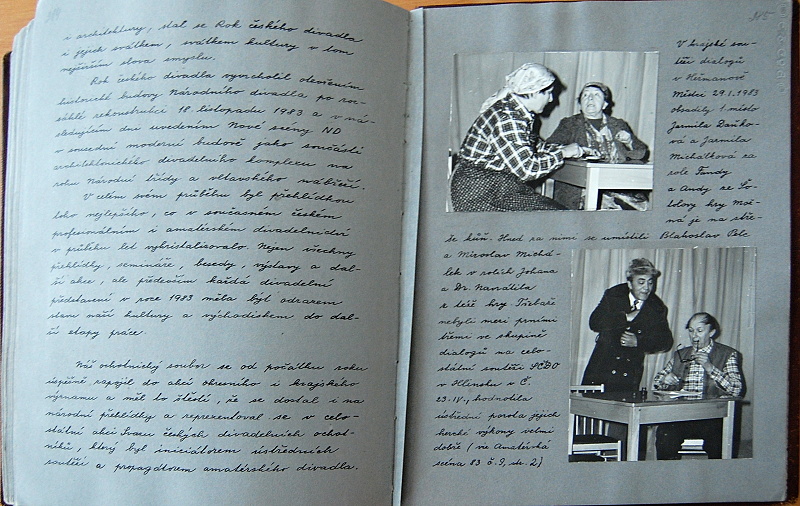 i architektury, stal se Rok českého divadla
i jejich svátkem, svátkem kultury v tom
nejširším slova smyslu.
Rok českého divadla vyvrcholil otevřením
historické budovy Národního divadla po roz-
sáhlé rekonstrukci 18. listopadu 1983 a v ná-
sledujícím dnu uvedením Nové scény ND
v sousední moderní budově jako součásti
architektonického divadelního komplexu na
rohu Národní třídy a vltavského nábřeží.
V celém svém průběhu byl přehlídkou
toho nejlepšího, co v současném českém
profesionálním i amatérském divadelnictví
v průběhu let vykristalizovalo. Nejen všechny
přehlídky, semináře, besedy, výstavy a dal-
ší akce, ale především každá divadelní
představení v roce 1983 měla být odrazem
stavu naší kultury a východiskem do dal-
ší etapy práce.
Náš ochotnický soubor se od počátku roku
úspěšně zapojil do akcí okresního i krajského
významu a měl to štěstí, že se dostal i na
národní přehlídky a reprezentoval se v celo-
státní akci Svazu českých divadelních ochot-
níků, který byl iniciátorem ústředních
soutěží a propagátorem amatérského divadla.
V krajské sou-
těži dialogů
v Heřmanově
Městci 29.1.1983
obsadily 1. místo
Jarmila Daňko-
vá a Jarmila
Michálková za
role Fandy
a Andy ze Šo-
tolovy hry Mož-
ná je na stře-
še kůň. Hned za nimi se umístili Blahoslav Pelc
a Miroslav Michá-
lek v rolích Johana
a Dr. Navrátila
z téže hry. Třebaže
nebyli mezi prvními
třemi ve skupině
dialogů na celo-
státní soutěži SČDO
v Hlinsku v Č.
23.IV., hodnotila
ústřední porota jejich
herecké výkony velmi
dobře (viz Amatérská
scéna 83 č. 9, str. 2)